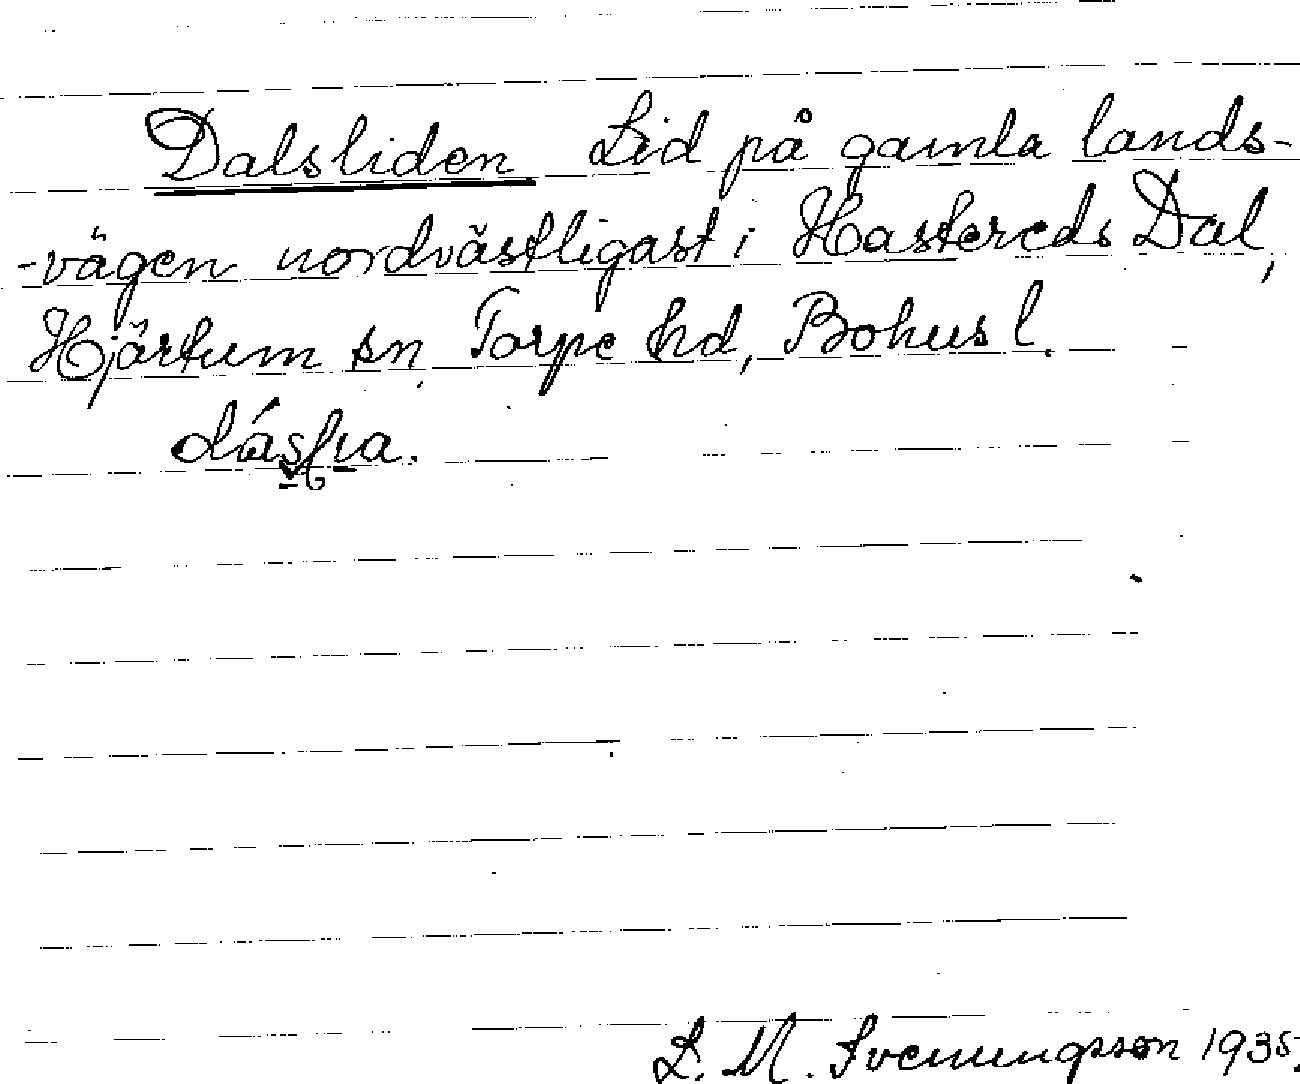 Dalsliden Lid på gamla lands-
-vägen nordvästligast i Hastereds Dal,
Hjärtum sn, Torpe hd, Bohusl.
L. M. Svenungsson 1935.